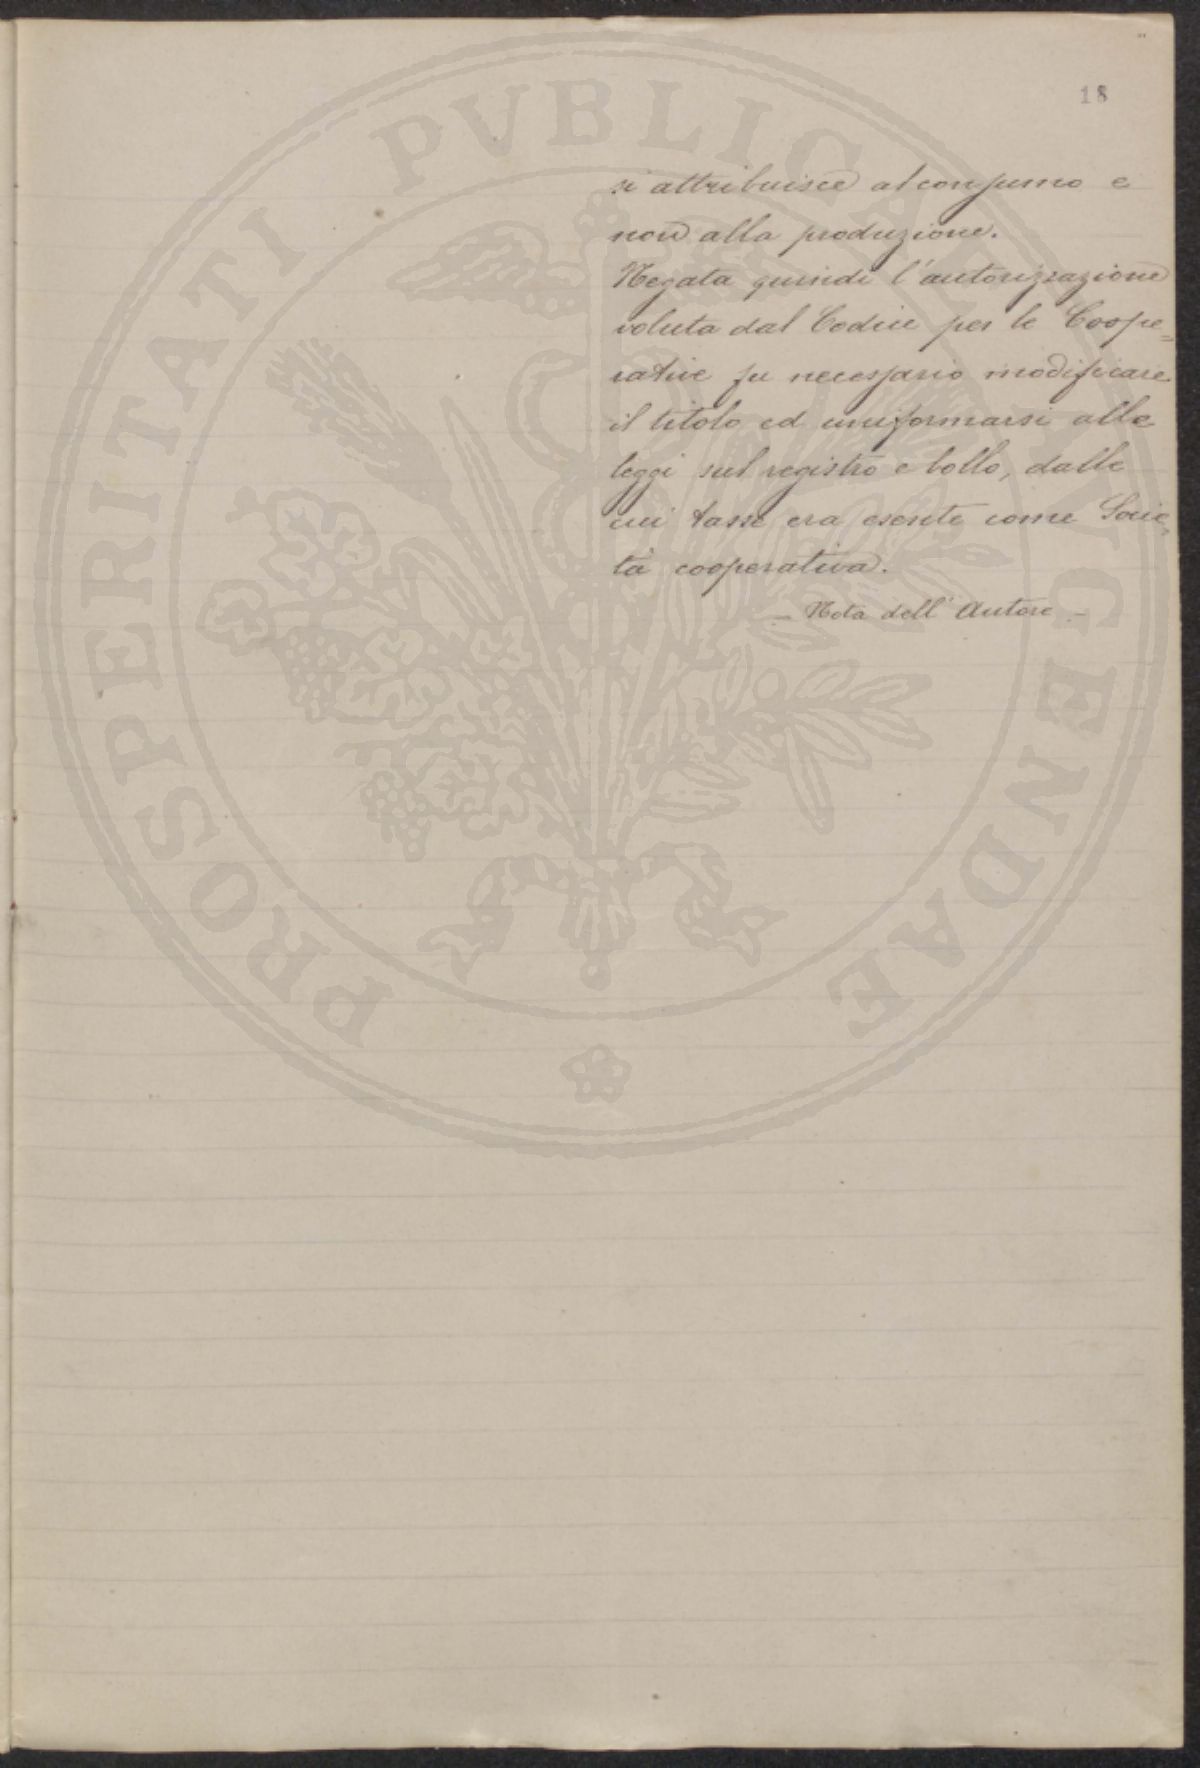 18
si attribuisce al consumo e
non alla produzione.
Negata quindi l'autorizzazione
voluta dal Codice per le Coope=
rative fu necessario modificare
il titolo ed uniformarsi alle
leggi sul registro e bollo, dalle
cui tasse era esente come Socie=
tà cooperativa.
- Nota dell'Autore -
PROSPERITATI PVBLICAE AVGENDAE